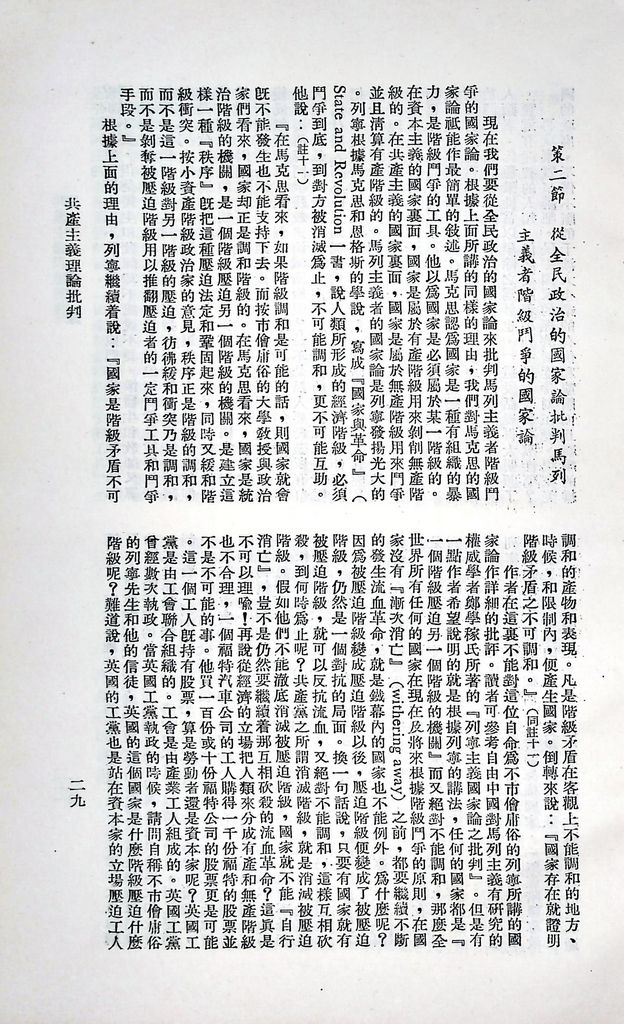 第二節　從全民政治的國家論批判馬列
主義者階級鬥爭的國家論
現在我們要從全民政治的國家論來批判馬列主義者階級鬥
爭的國家論。根據上面所講的同樣的理由，我們對馬克思的國
家論祗能作最簡單的敘述。馬克思認爲國家是一種有組織的暴
力，是階級鬥爭的工具。他以爲國家是必須屬於某一階級的。
在資本主義的國家裏面，國家是屬於有產階級用來剝削無產階
級的。在共產主義的國家裏面，國家是屬於無產階級用來鬥爭
並且清算有產階級的。馬列主義者的國家論是列寧發揚光大的
。列寧根據馬克思和恩格斯的學說，寫成『國家與革命』（
State and Revolution 一書，說人類所形成的經濟階級，必須
鬥爭到底，到對方被消滅爲止，不可能調和，更不可能互助。
他說：（註十一）
『在馬克思看來，如果階級調和是可能的話，則國家就會
旣不能發生也不能支持下去。而按市儈庸俗的大學教授與政治
家們看來，國家却正是調和階級的。在馬克思看來，國家是統
治階級的機關，是一個階級壓迫另一個階級的機關。是建立這
樣一種『秩序』旣把這種壓迫法定和鞏固起來，同時又緩和階
級衝突。按小資產階級政治家的意見，秩序正是階級的調和，
而不是這一階級對另一階級的壓迫，彷彿緩和衝突乃是調和，
而不是剝奪被壓迫階級用以推翻壓迫者的一定鬥爭工具和鬥爭
手段。』
根據上面的理由，列寧繼續着說：『國家是階級矛盾不可
共產主義理論批判
調和的產物和表現。凡是階級矛盾在客觀上不能調和的地方、
時候，和限制內，便產生國家。倒轉來說：『國家存在就證明
階級矛盾之不可調和。』（同註十一）
作者在這裏不能對這位自命爲不市儈庸俗的列寧所講的國
家論作詳細的批評。讀者可參考自由中國對馬列主義有研究的
權威學者鄭學稼氏所著的『列寧主義國家論之批判』。但是有
一點作者希望說明的就是根據列寧的講法，任何的國家都是『
一個階級壓迫另一個階級的機關』而又絕對不能調和，那麼全
世界所有任何的國家在現在及將來根據階級鬥爭的原則，在國
家沒有『漸次消亡』（withering away）之前，都要繼續不斷
的發生流血革命，就是鐵幕內的國家也不能例外。爲什麼呢？
因爲被壓迫階級變成壓迫階級以後，壓迫階級便變成了被壓迫
階級，仍然是一個對抗的局面。換一句話說，只要有國家就有
被壓迫階級，就可以反抗流血，又絕對不能調和，這樣互相砍
殺，到何時爲止呢？共產黨之所謂消滅階級，就是消滅被壓迫
階級。假如他們不能澈底消滅被壓迫階級，國家就不能『自行
消亡』，豈不是仍然要繼續着那互相砍殺的流血革命？這眞是
不可以理喻！再說從經濟的立場把人類來分成有產和無產階級
也不合理，一個福特汽車公司的工人購得一千份福特的股票並
不是不可能的事。他買一百份或十份福特公司的股票更是可能
。這一個工人旣持有股票，算是勞動者還是資本家呢？英國工
黨是由工會聯合組織的。工會是由產業工人組成的。英國工黨
曾經數次執政。當英國工黨執政的時候，請問自稱不市儈庸俗
的列寧先生和他的信徒，英國的這個國家是什麼階級壓迫什麼
階級呢？難道說，英國的工黨也是站在資本家的立場壓迫工人
二九